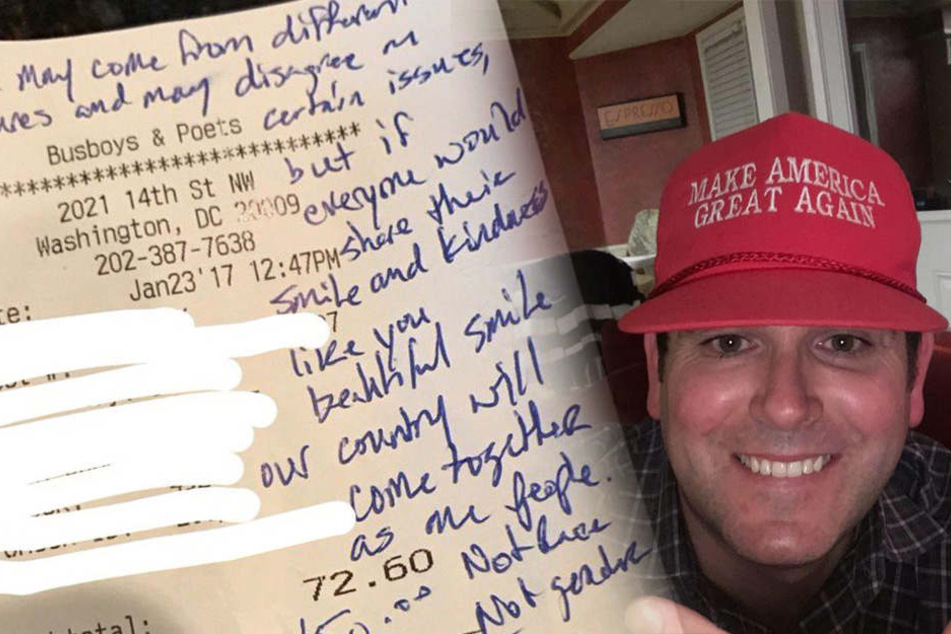 may come from different
ures and may disagree on
certain issues,
Busboys & Poets
**************************
2021 14th St NW
Washington, DC 20009
202-387-7638
Jan23'17 12:47PM
but if
everyone would
share their
smile and kindness
like you
beautiful smile
our country will
come together
as one people.
72.60
Not race
Not gendre
total:
ESPRESSO
MAKE AMERICA
GREAT AGAIN